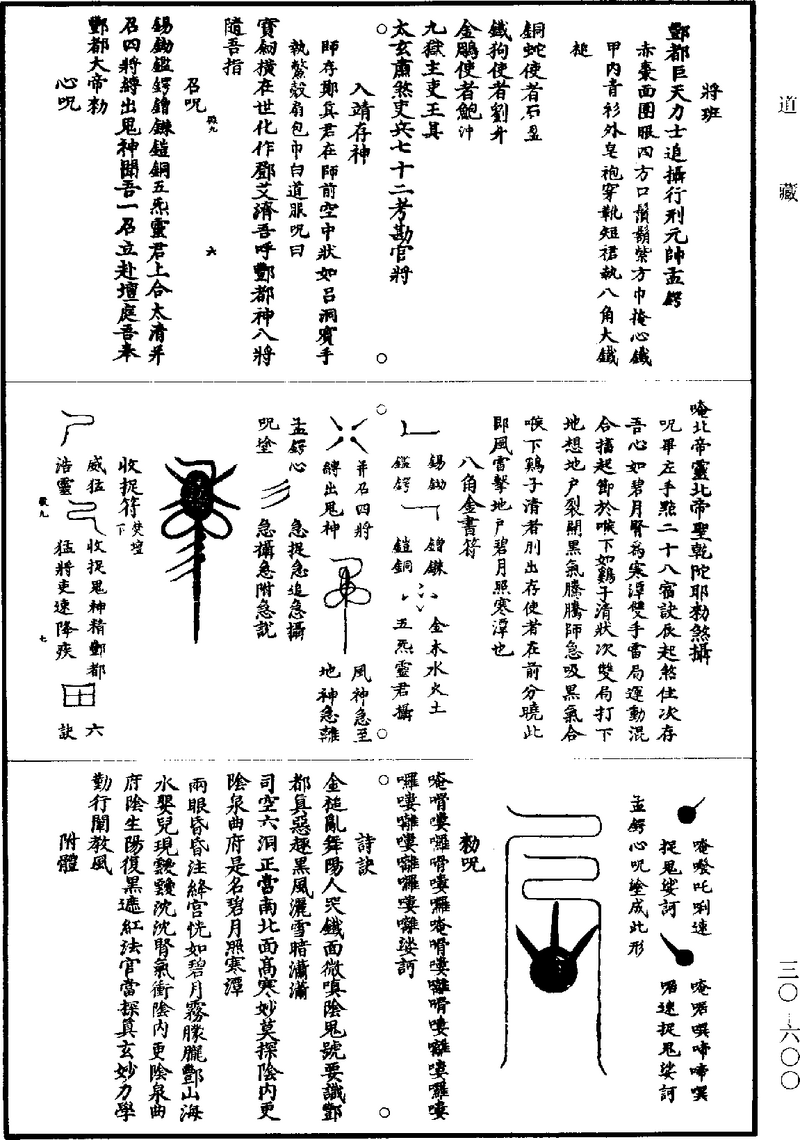 道藏
三〇—六〇〇
將班
酆都巨天力士追攝行刑元帥孟鍔
赤棗面團眼四方口鬚鬍紫方巾掩心鐵
甲內青衫外皂袍穿靴短裙執八角大鐵
槌
銅蛇使者石盈
鐵狗使者劉升
金鵰使者鮑沖
九獄主吏王真
太玄肅煞吏兵七十二考勘官將
入靖存神
師存鄭真君在師前空中狀如呂洞賓手
執鱉殼扇包巾白道服呪曰
寶劒橫在世化作鄧艾濟吾呼酆都神八將
隨吾指
召呪
錫鋤鎡鍔鐠鏼鎧銅五炁靈君上合太清并
召四將縛出鬼神聞吾一召立赴壇庭吾奉
酆都大帝勑
心呪
六
唵北帝靈北帝聖乾陀耶勑煞攝
呪畢左手點二十八宿訣辰起煞住次存
吾心如碧月腎為寒潭雙手雷局運動混
合搐起卽於喉下如鷄子清狀次雙局打下
地想地戶裂開黑氣騰騰師急吸黑氣合
喉下鷄子清者刑出存使者在前分曉此
卽風雷擊地戶碧月照寒潭也
八角金書符
錫鋤
鐠鏼
金木水火土
鎡鍔
鎧銅
五炁靈君攝
并召四將
縛出鬼神
風神急至
地神急離
孟鍔心
呪塗
急捉急追急攝
急攝急附急說
收捉符焚壇下
威猛
浩靈
收捉鬼神精酆都
猛將吏速降疾
六
訣
七
唵𭉨吒唎速
捉鬼娑訶
唵㗋㗛啼啼㗛
㗋速捉鬼娑訶
孟鍔心呪塗成此形
勑呪
詩訣
金槌亂舞陽人哭鐵面微嗔陰鬼號要識酆
都真惡趣黑風灑雪暗瀟瀟
司空六洞正當南北面高寒妙莫探陰內更
陰泉曲府是名碧月照寒潭
兩眼昏昏注絳宮恍如碧月霧朦朧酆山海
水嬰兒現靉靆沈沈腎氣衝陰內更陰泉曲
府陰生陽復黑遮紅法官當探真玄妙力學
勤行闡教風
附體